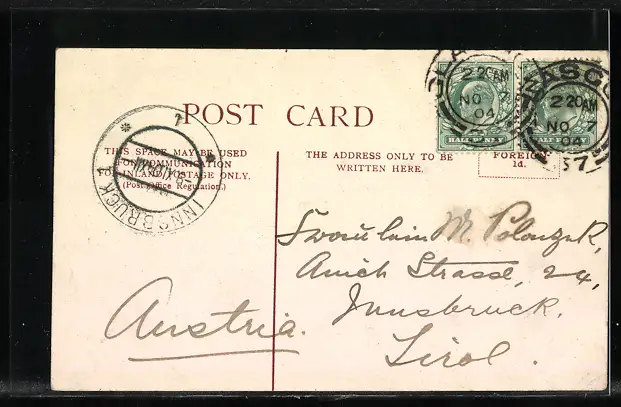 POST CARD
THIS SPACE MAY BE USED
FOR COMMUNICATION
FOR INLAND POSTAGE ONLY.
(Post Office Regulation.)
THE ADDRESS ONLY TO BE
WRITTEN HERE.
FOREIGN
1d.
HALF PENNY
HALF PENNY
2 20AM
NO 7
04
GLASGOW
2 20AM
NO 7
04
37
INNSBRUCK 1
Fraulein M.
Anich Strasse, 24,
Innsbruck,
Tirol.
Austria.